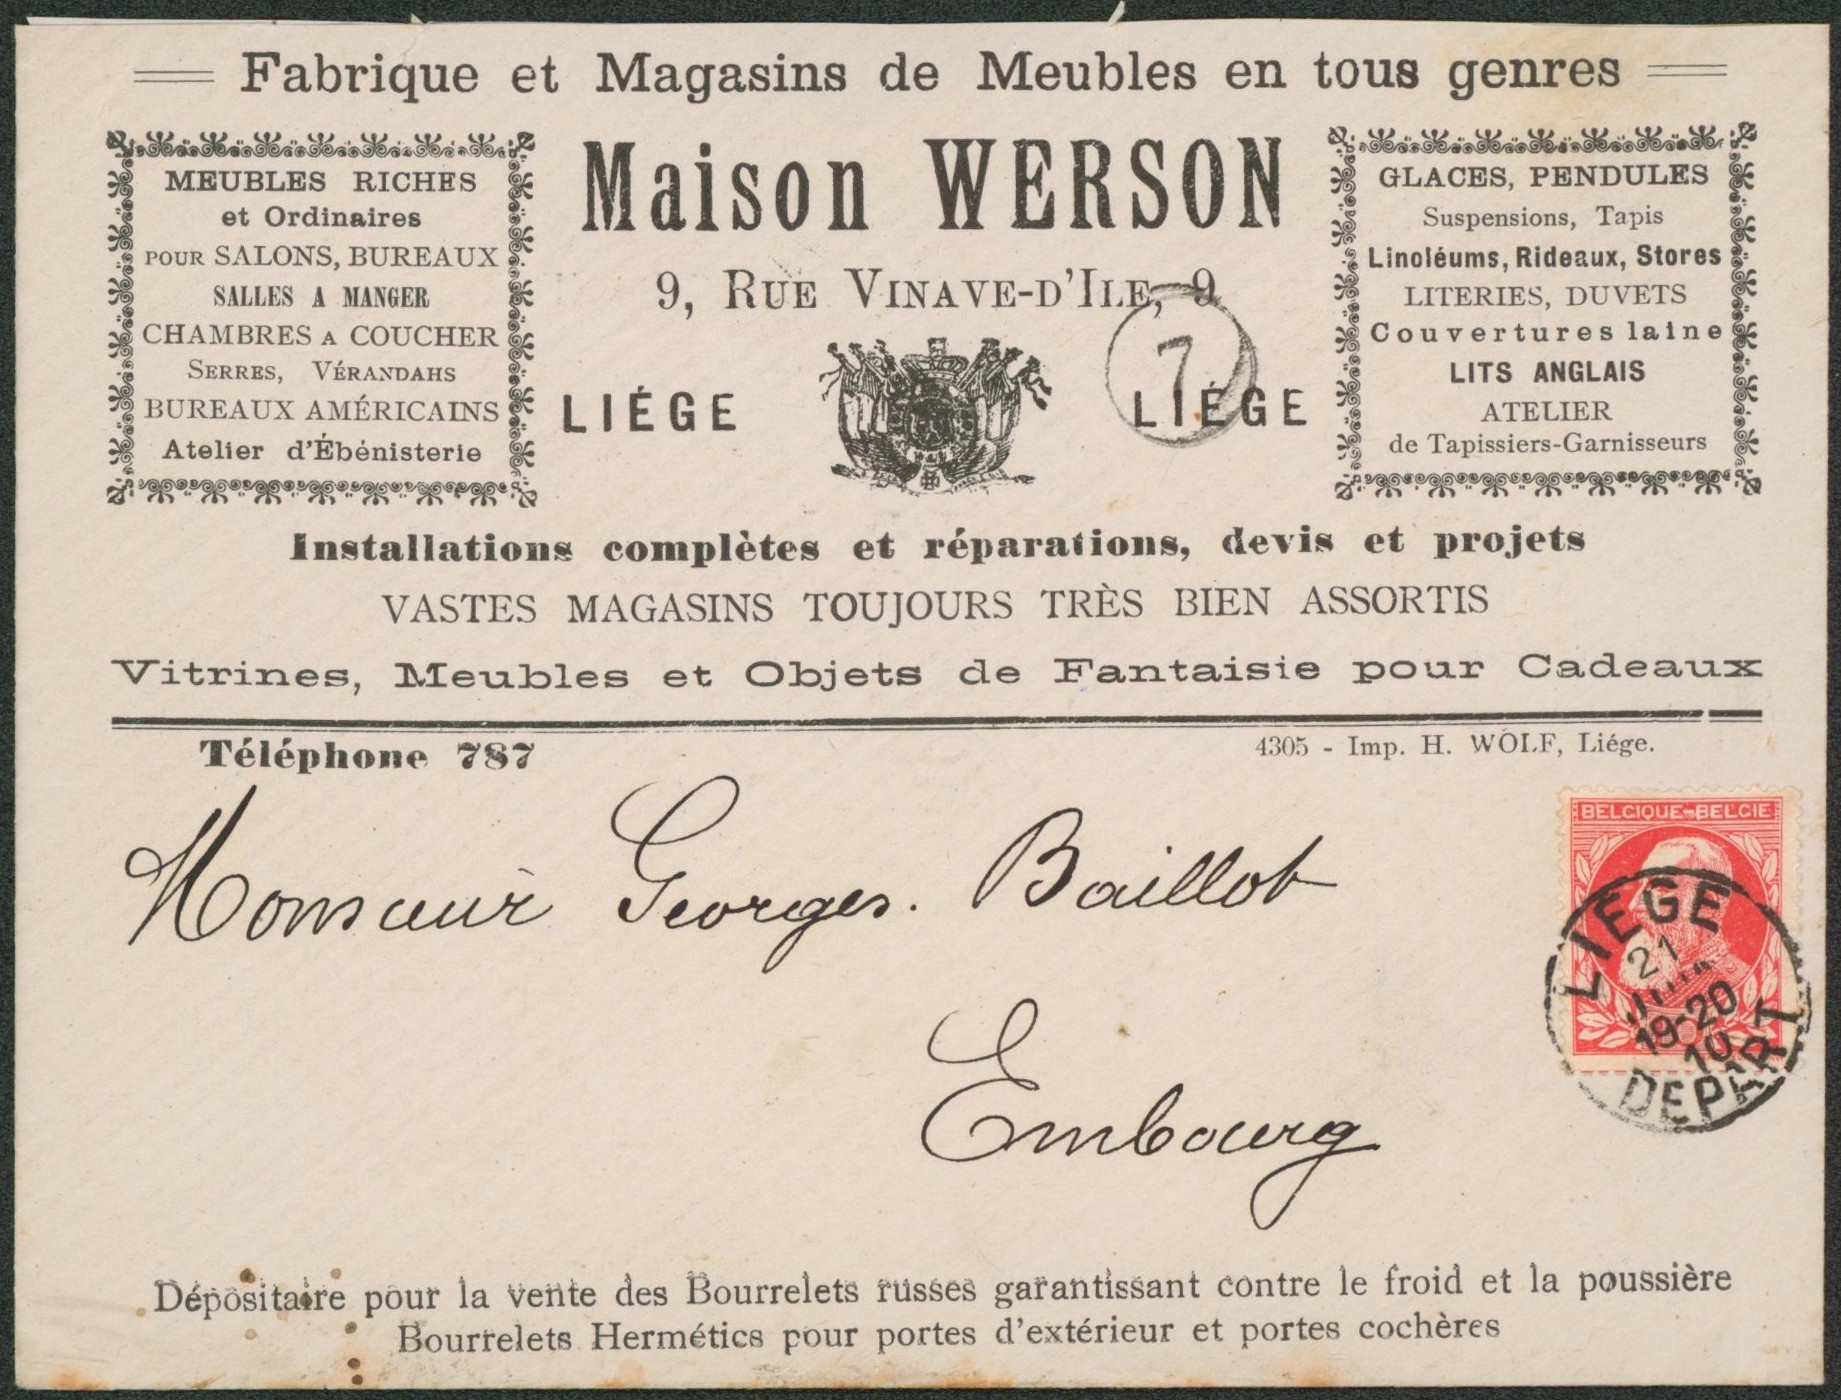 Fabrique et Magasins de Meubles en tous genres
MEUBLES RICHES
et Ordinaires
POUR SALONS, BUREAUX
SALLES A MANGER
CHAMBRES A COUCHER
SERRES, VÉRANDAHS
BUREAUX AMÉRICAINS
Atelier d'Ébénisterie
Maison WERSON
9, RUE VINAVE-D'ILE, 9
7
LIÉGE LIÉGE
GLACES, PENDULES
Suspensions, Tapis
Linoléums, Rideaux, Stores
LITERIES, DUVETS
Couvertures laine
LITS ANGLAIS
ATELIER
de Tapissiers-Garnisseurs
Installations complètes et réparations, devis et projets
VASTES MAGASINS TOUJOURS TRÈS BIEN ASSORTIS
Vitrines, Meubles et Objets de Fantaisie pour Cadeaux
Téléphone 787
4305 - Imp. H. WOLF, Liége.
BELGIQUE-BELGIE
LIEGE
21
19-20
10
DEPART
Monsieur Georges. Baillot
Embourg
Dépositaire pour la vente des Bourrelets russes garantissant contre le froid et la poussière
Bourrelets Hermétics pour portes d'extérieur et portes cochères